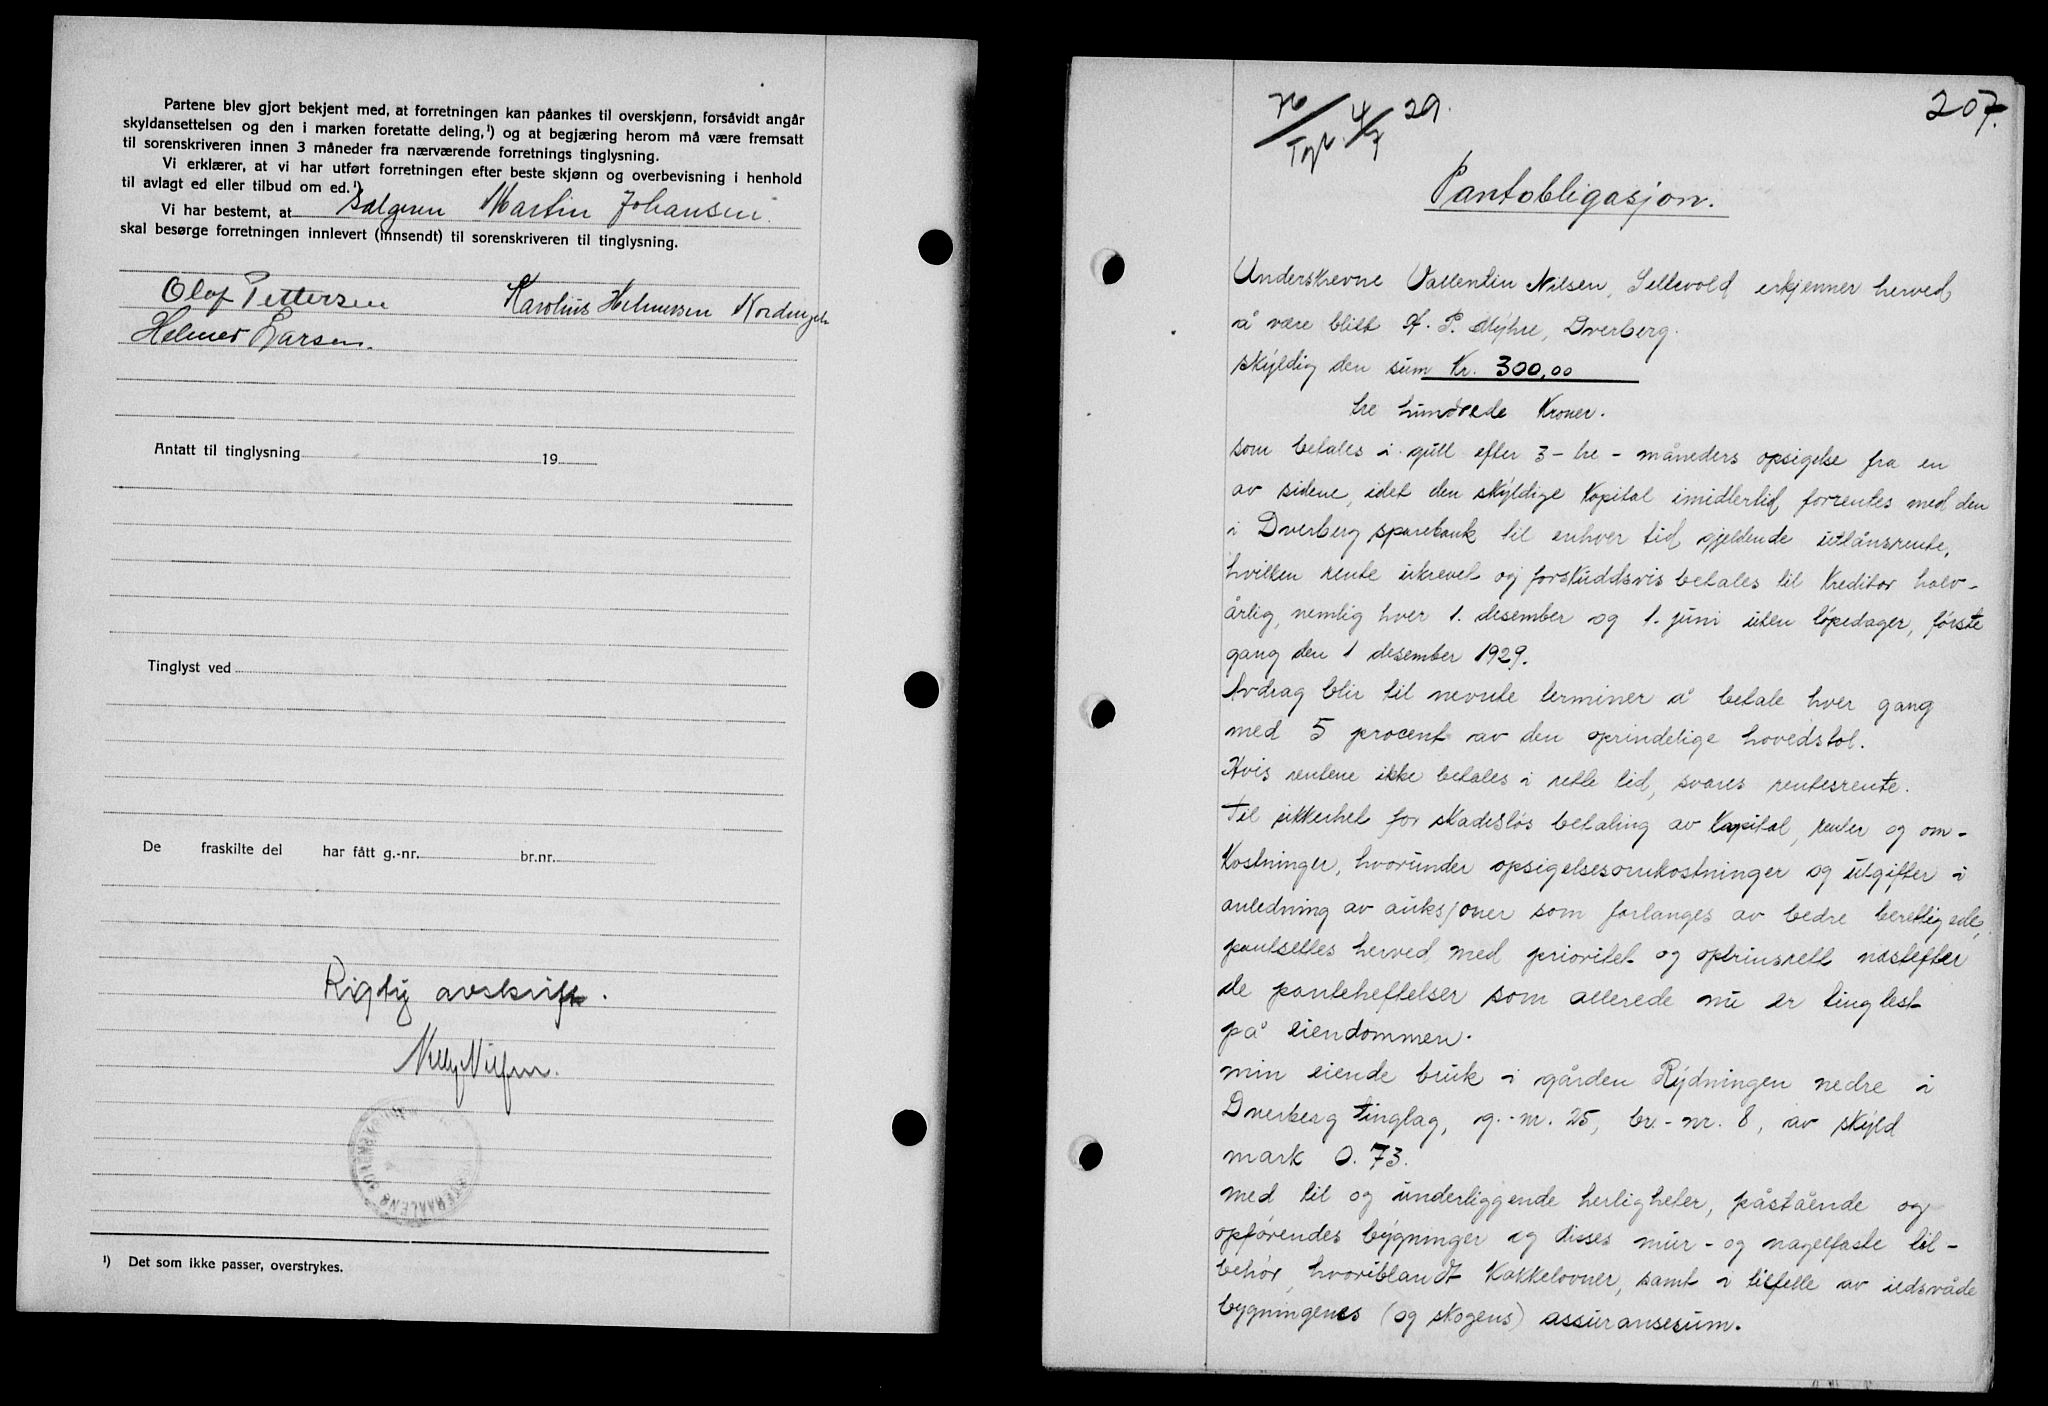 Partene blev gjort bekjent med, at forretningen kan påankes til overskjønn, forsåvidt angår
skyldansettelsen og den i marken foretatte deling,¹) og at begjæring herom må være fremsatt
til sorenskriveren innen 3 måneder fra nærværende forretnings tinglysning.
Vi erklærer, at vi har utført forretningen efter beste skjønn og overbevisning i henhold
til avlagt ed eller tilbud om ed.¹)
Vi har bestemt, at Sælgeren Martin Johansen.
skal besørge forretningen innlevert (innsendt) til sorenskriveren til tinglysning.
Olaf Pettersen Karolius Helmersen
Helmer Larsen.
Antatt til tinglysning 19
Tinglyst ved
De fraskilte del har fått g.-nr. br.nr.
Rigtig avskrift.
Nelly Nilsen.
¹) Det som ikke passer, overstrykes.
207.
76/Tgl. 4/7 29.
Pantobligasjon.
Underskrevne Vallentin Nilsen, Sellevold erkjenner herved
å være blitt A. P. Myhre, Dverberg.
skyldig den sum Kr. 300,00
tre hundrede Kroner.
som betales i gull efter 3 - tre - måneders opsigelse fra en
av sidene, idet den skyldige Kapital imidlertid forrentes med den
i Dverberg sparebank til enhver tid gjeldende utlånsrente,
hvilken rente ukrevet og forskuddsvis betales til Kreditor halv-
årlig, nemlig hver 1. desember og 1. juni uten løpedager, første
gang den 1 desember 1929.
Avdrag blir til nevnte terminer å betale hver gang
med 5 procent av den oprindelige hovedstol.
Hvis rentene ikke betales i rette tid, svares rentesrente.
Til sikkerhet for skadesløs betaling av Kapital, renter og om-
kostninger, hvorunder opsigelsesomkostninger og utgifter i
anledning av auksjoner som forlanges av bedre berettigede,
pantsettes herved med prioritet og optrinsrett næstefter
de panteheftelser som allerede nu er tinglest
på eiendommen.
min eiende bruk i gården Rydningen nedre i
Dverberg tinglag, g.-nr. 25, br.-nr. 8, av skyld
mark 0.73.
med til og underliggende herligheter, påstående og
opførendes bygninger og disses mur- og nagelfaste til-
behør, hvoriblandt Kakkelovner, samt i tilfelle av ildsvåde
bygningenes (og skogens) assuransesum.